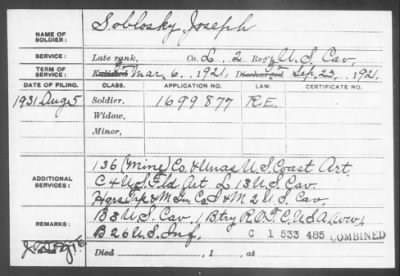 NAME OF SOLDIER: Soblosky, Joseph
SERVICE: Late rank, Co. L. 2 Reg't U.S. Cav.
TERM OF SERVICE: Enlisted Mar. 6, 1921, Discharged Sep. 23, 1921.
DATE OF FILING. CLASS. APPLICATION NO. LAW. CERTIFICATE NO.
1931 Aug 5 Soldier, 1699877 R.E.
Widow,
Minor,
ADDITIONAL SERVICES: 136 (Mine) Co. & Unas U.S. Coast Art.
C & U.S. Fld Art. L 13 U.S. Cav.
& M 2 U.S. Cav.
REMARKS: B 3 U.S. Cav., 1 Btry R.O.T.C. U.S.A. (WW)
B 26 U.S. Inf. C 1 533 485 COMBINED
Died , 1 , at